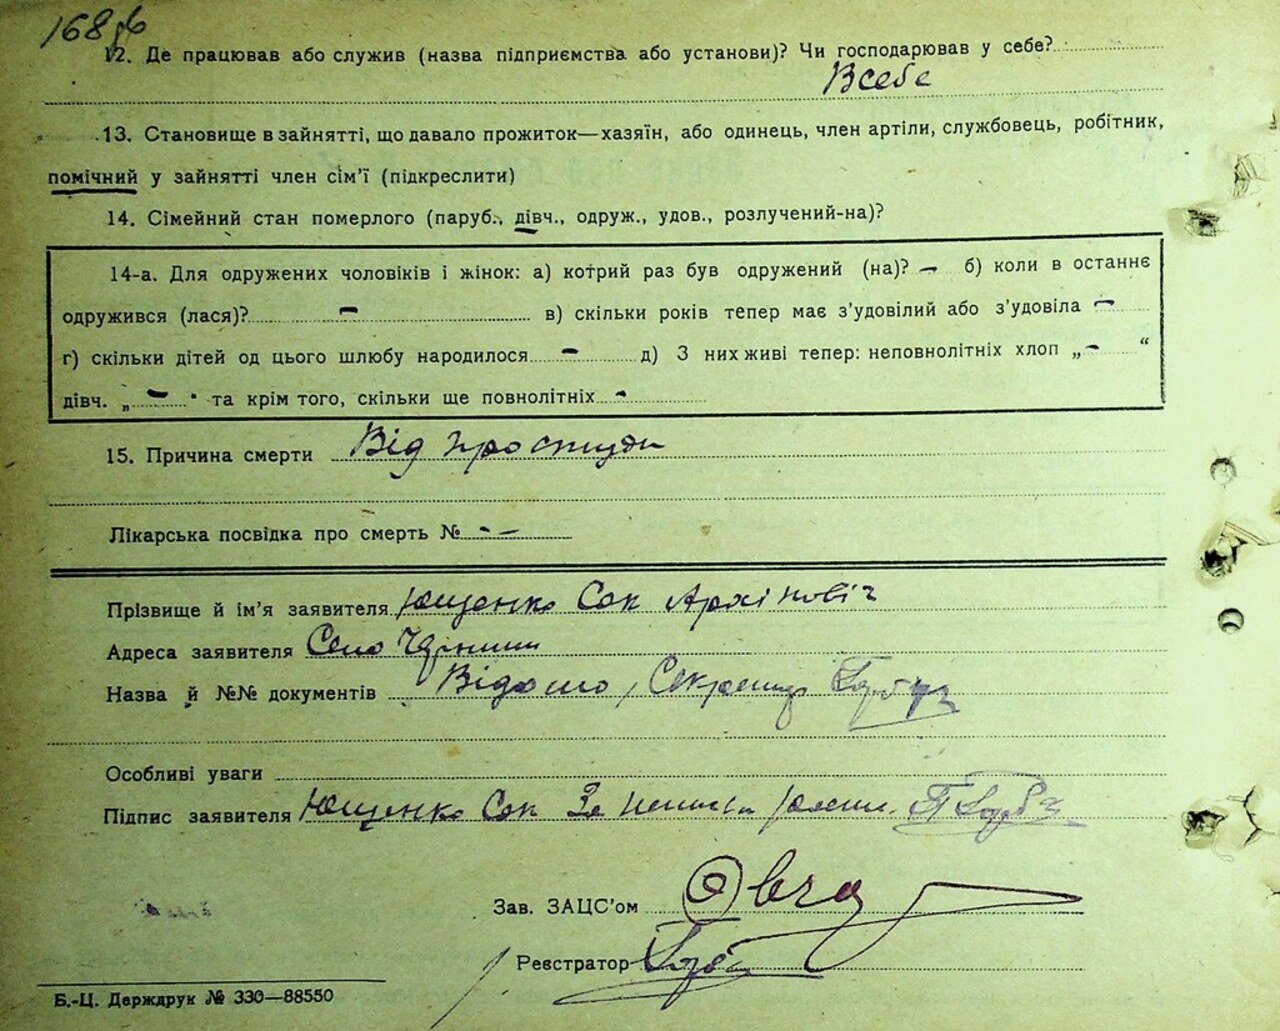 168
12. Де працював або служив (назва підприємства або установи)? Чи господарював у себе?
Всебе
13. Становище в зайнятті, що давало прожиток—хазяїн, або одинець, член артіли, службовець, робітник,
помічний у зайнятті член сім'ї (підкреслити)
14. Сімейний стан померлого (паруб., дівч., одруж., удов., розлучений-на)?
14-а. Для одружених чоловіків і жінок: а) котрий раз був одружений (на)? – б) коли в останнє
одружився (лася)? – в) скільки років тепер має з'удовілий або з'удовіла –
г) скільки дітей од цього шлюбу народилося – д) З них живі тепер: неповнолітніх хлоп „–“
дівч. „–" та крім того, скільки ще повнолітніх -
15. Причина смерти Від простуди
Лікарська посвідка про смерть № - –
Прізвище й ім'я заявителя Ющенко Сак Архіпові
Адреса заявителя Село
Назва й №№ документів Відомо, Секретар
Особливі уваги
Підпис заявителя Ющенко Сак За
Зав. ЗАЦС'ом
Реєстратор
Б.-Ц. Держдрук № 330—88550